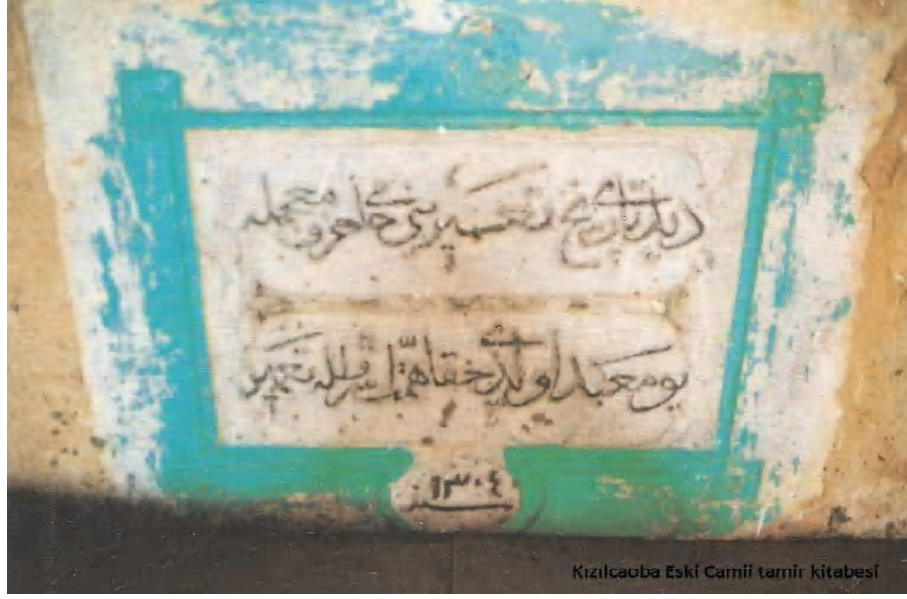 دیدی تاریخ تعمیرینی جوهر معجمله
بو معبد اولدی حقا همت ایله تعمیر
سنه ١٣٠٤
Kızılcaoba Eski Camii tamir kitabesi